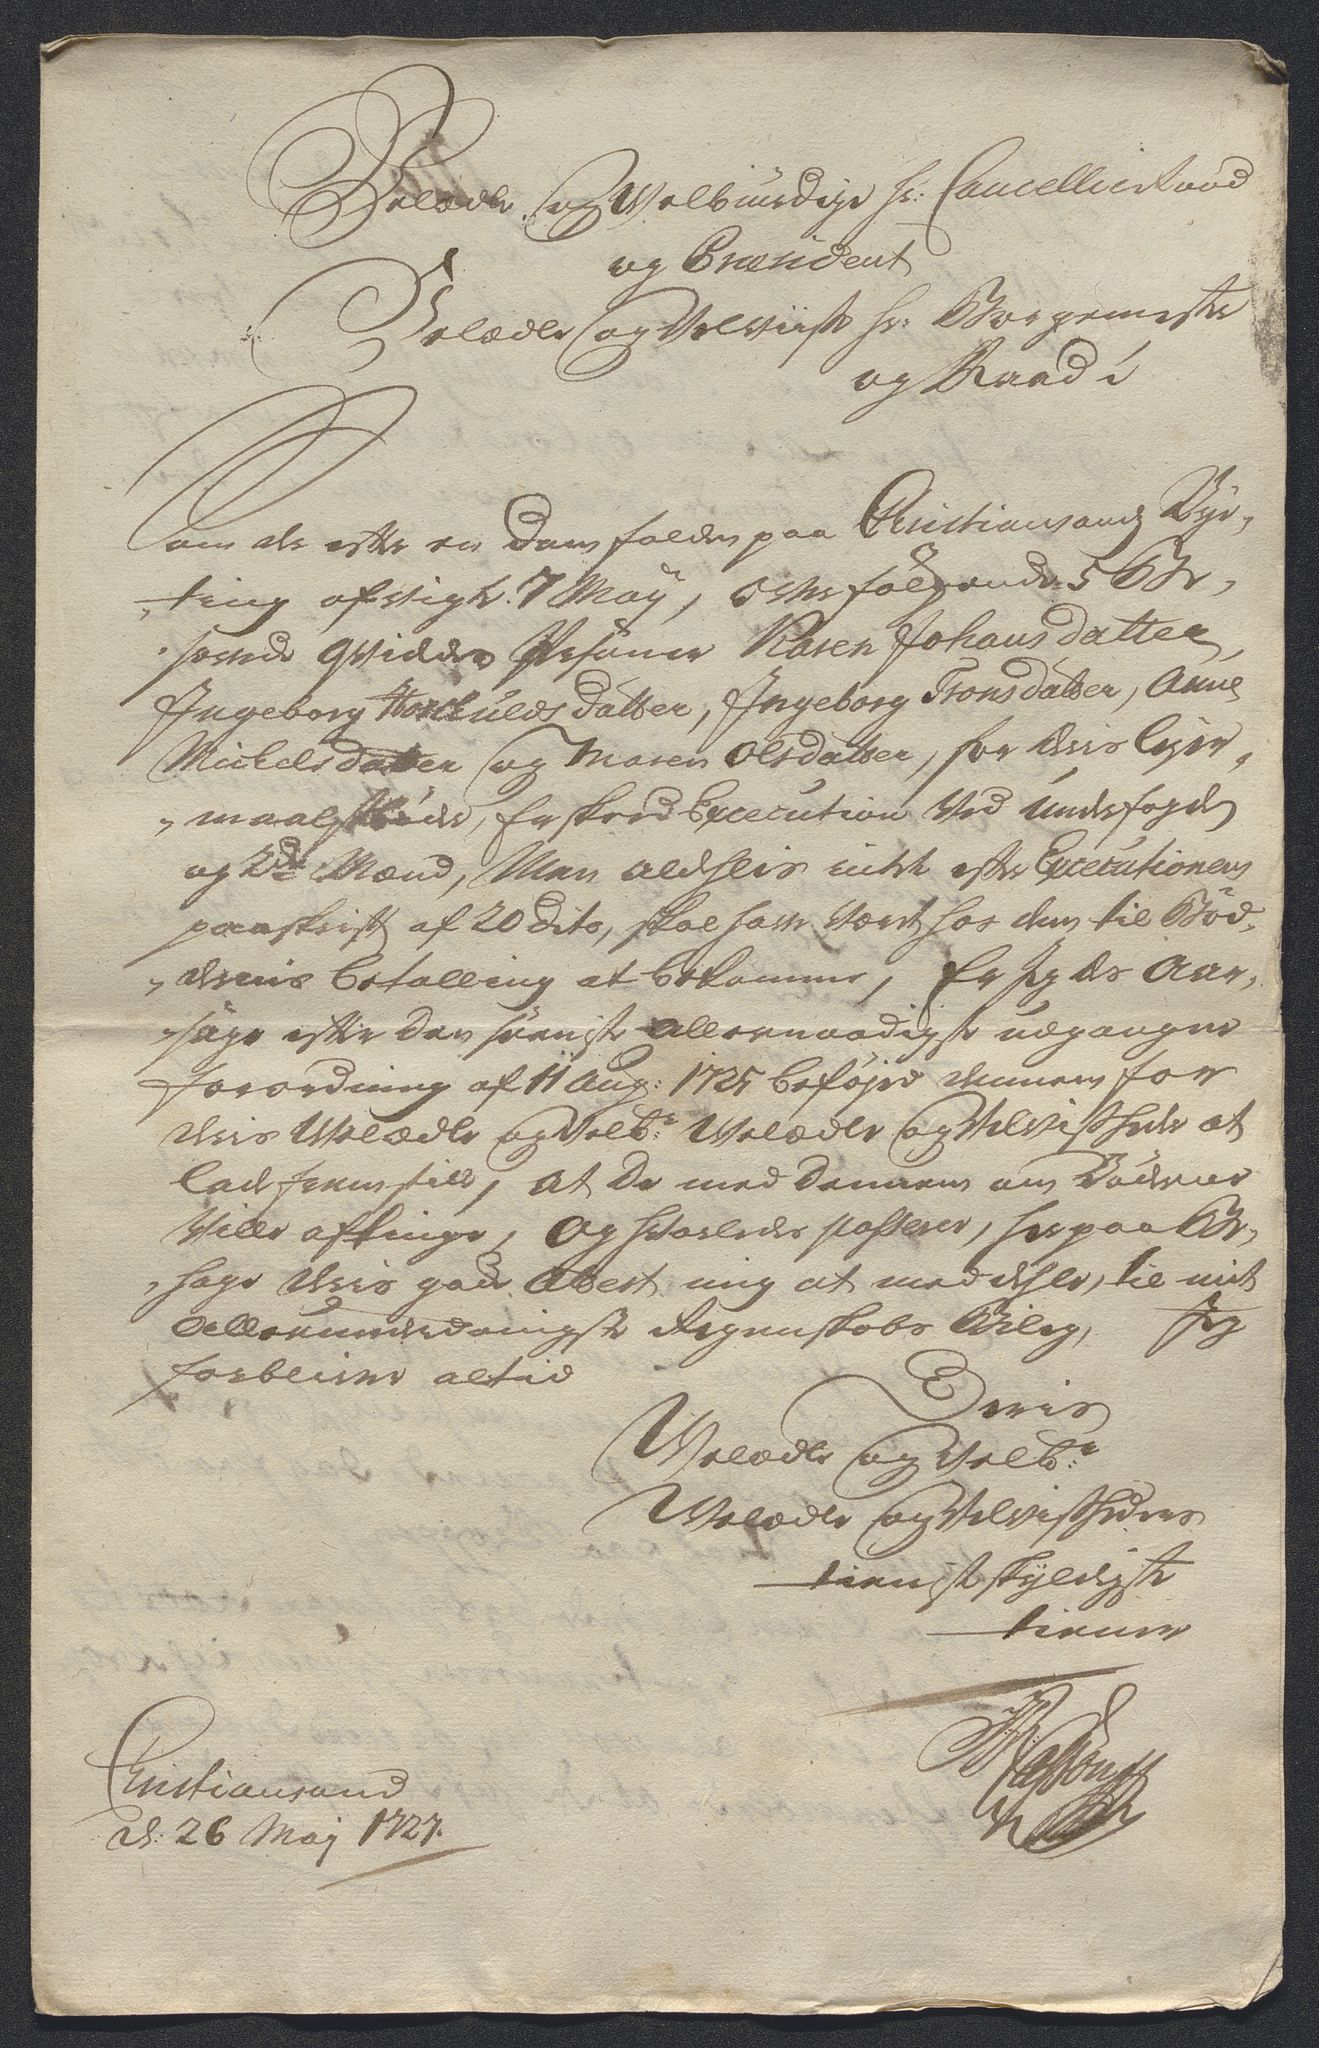 Velædle og Velbiurdige hr: Cancellieraad
og Præsident
Velædle og Velviise hr: Borgemester
og Raad i
Som der efter en Dom falden paa Christiansands Bye,
„ting afvigte 7 May, over følgende 5 Be,
„ Qvindes Persóner Karen Johansdatter,
Ingeborg Torkuldsdatter, Ingeborg Tronsdatter, Anne
Michelsdatter og Maren Olsdatter, for deris lejer,
„maals bøder, Er skeed Execution ved Underfogden
og 2de Mænd, Men aldeelis intet efter Executionens
paaskrift af 20 dito, skal have været hos dem til Bød,
„dernis betalling at bekomme, Er jeg des Aar,
„sage efter den seeniste allernaadigste udgangne
forordning af 11 Aug: 1725 beføjed dennem for
deris Velædle og Velb:r Velædle og Velviished er at
lade fremstille, at de med dennem om Bøderne
ville aftinge, og hvorledes passerer, herpaa Be,
„hage deris gode Attest mig at meddeele, til mit
allerunderdanigste Regenskobs Bilag, Jeg
forblifver altid
Deris
Velædle og Velb:r
Velædle og Velviishedens
tienstskyldigste
tienner
Christiansand
d: 26 Maj 1727.